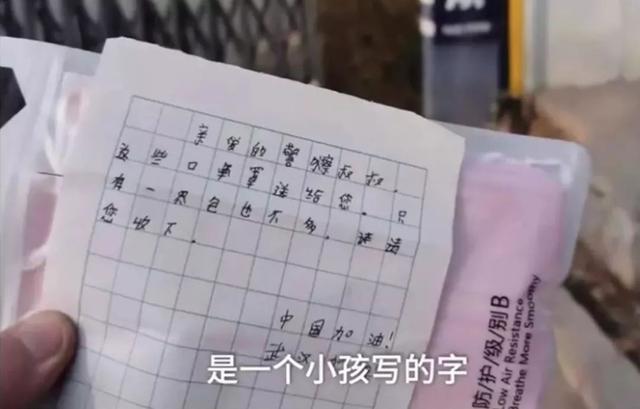 亲爱的警察叔叔,
这些口罩送给您。只
有一点包也不多。请
您收下。
中国加油!
武汉
是一个小孩写的字
防/护/级/别B
Low Air Resistance
Breathe More Smoothly